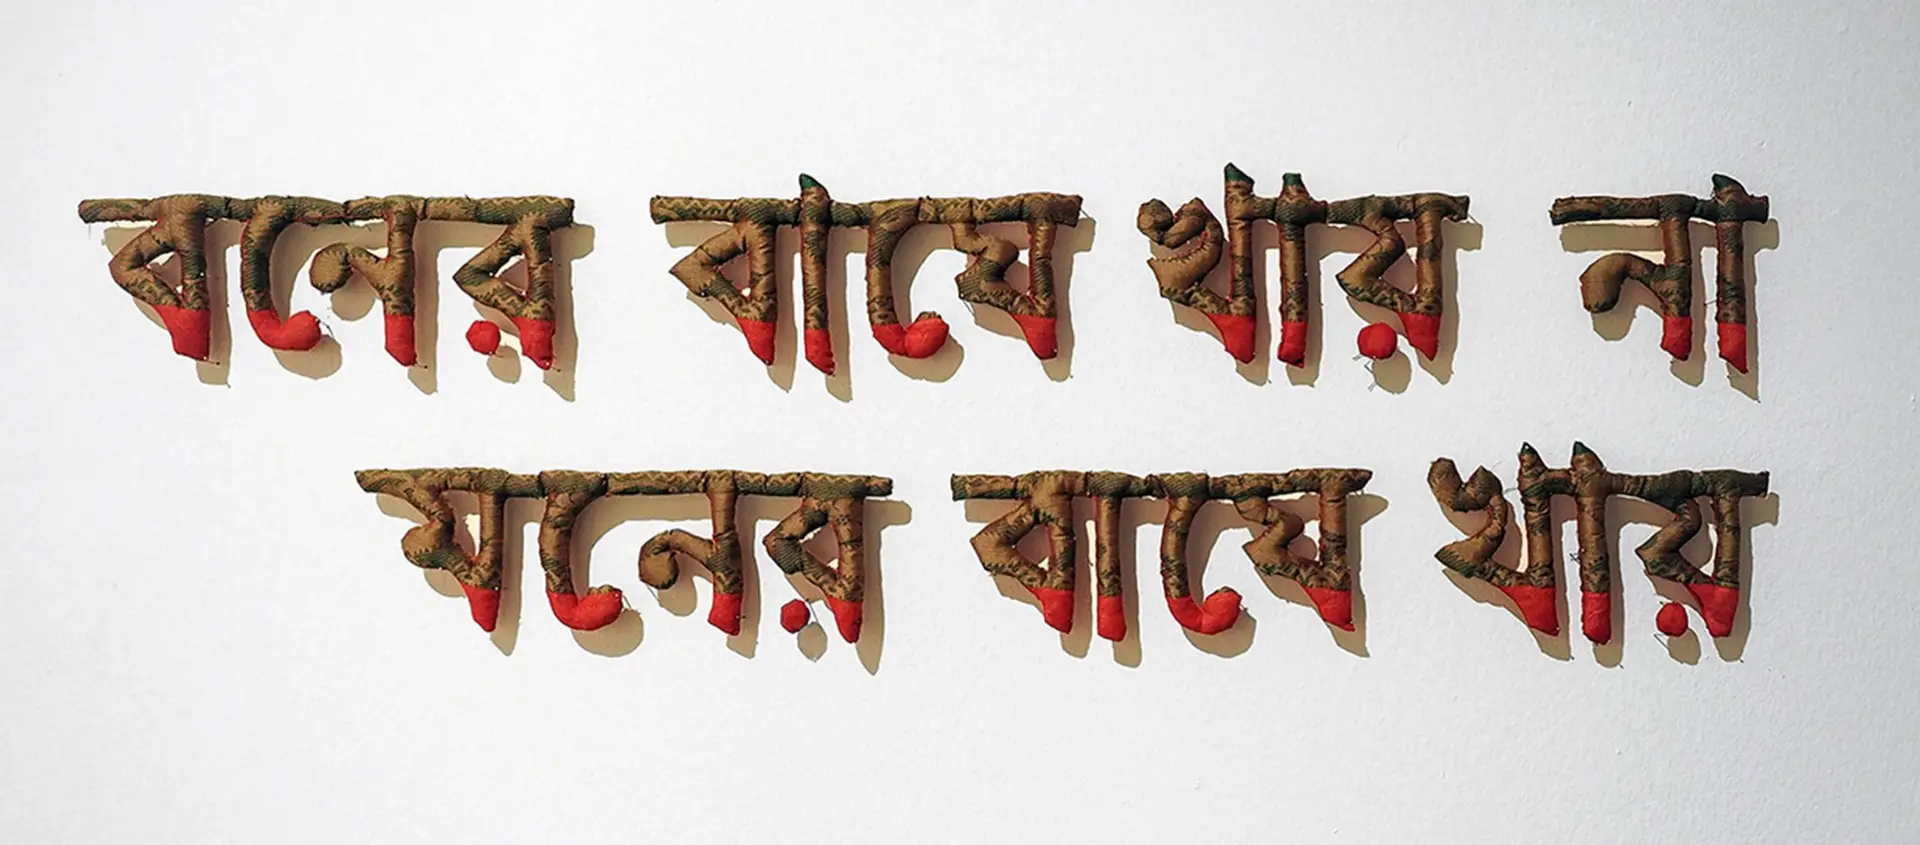 বনের বাঘে খায় না
মনের বাঘে খায়